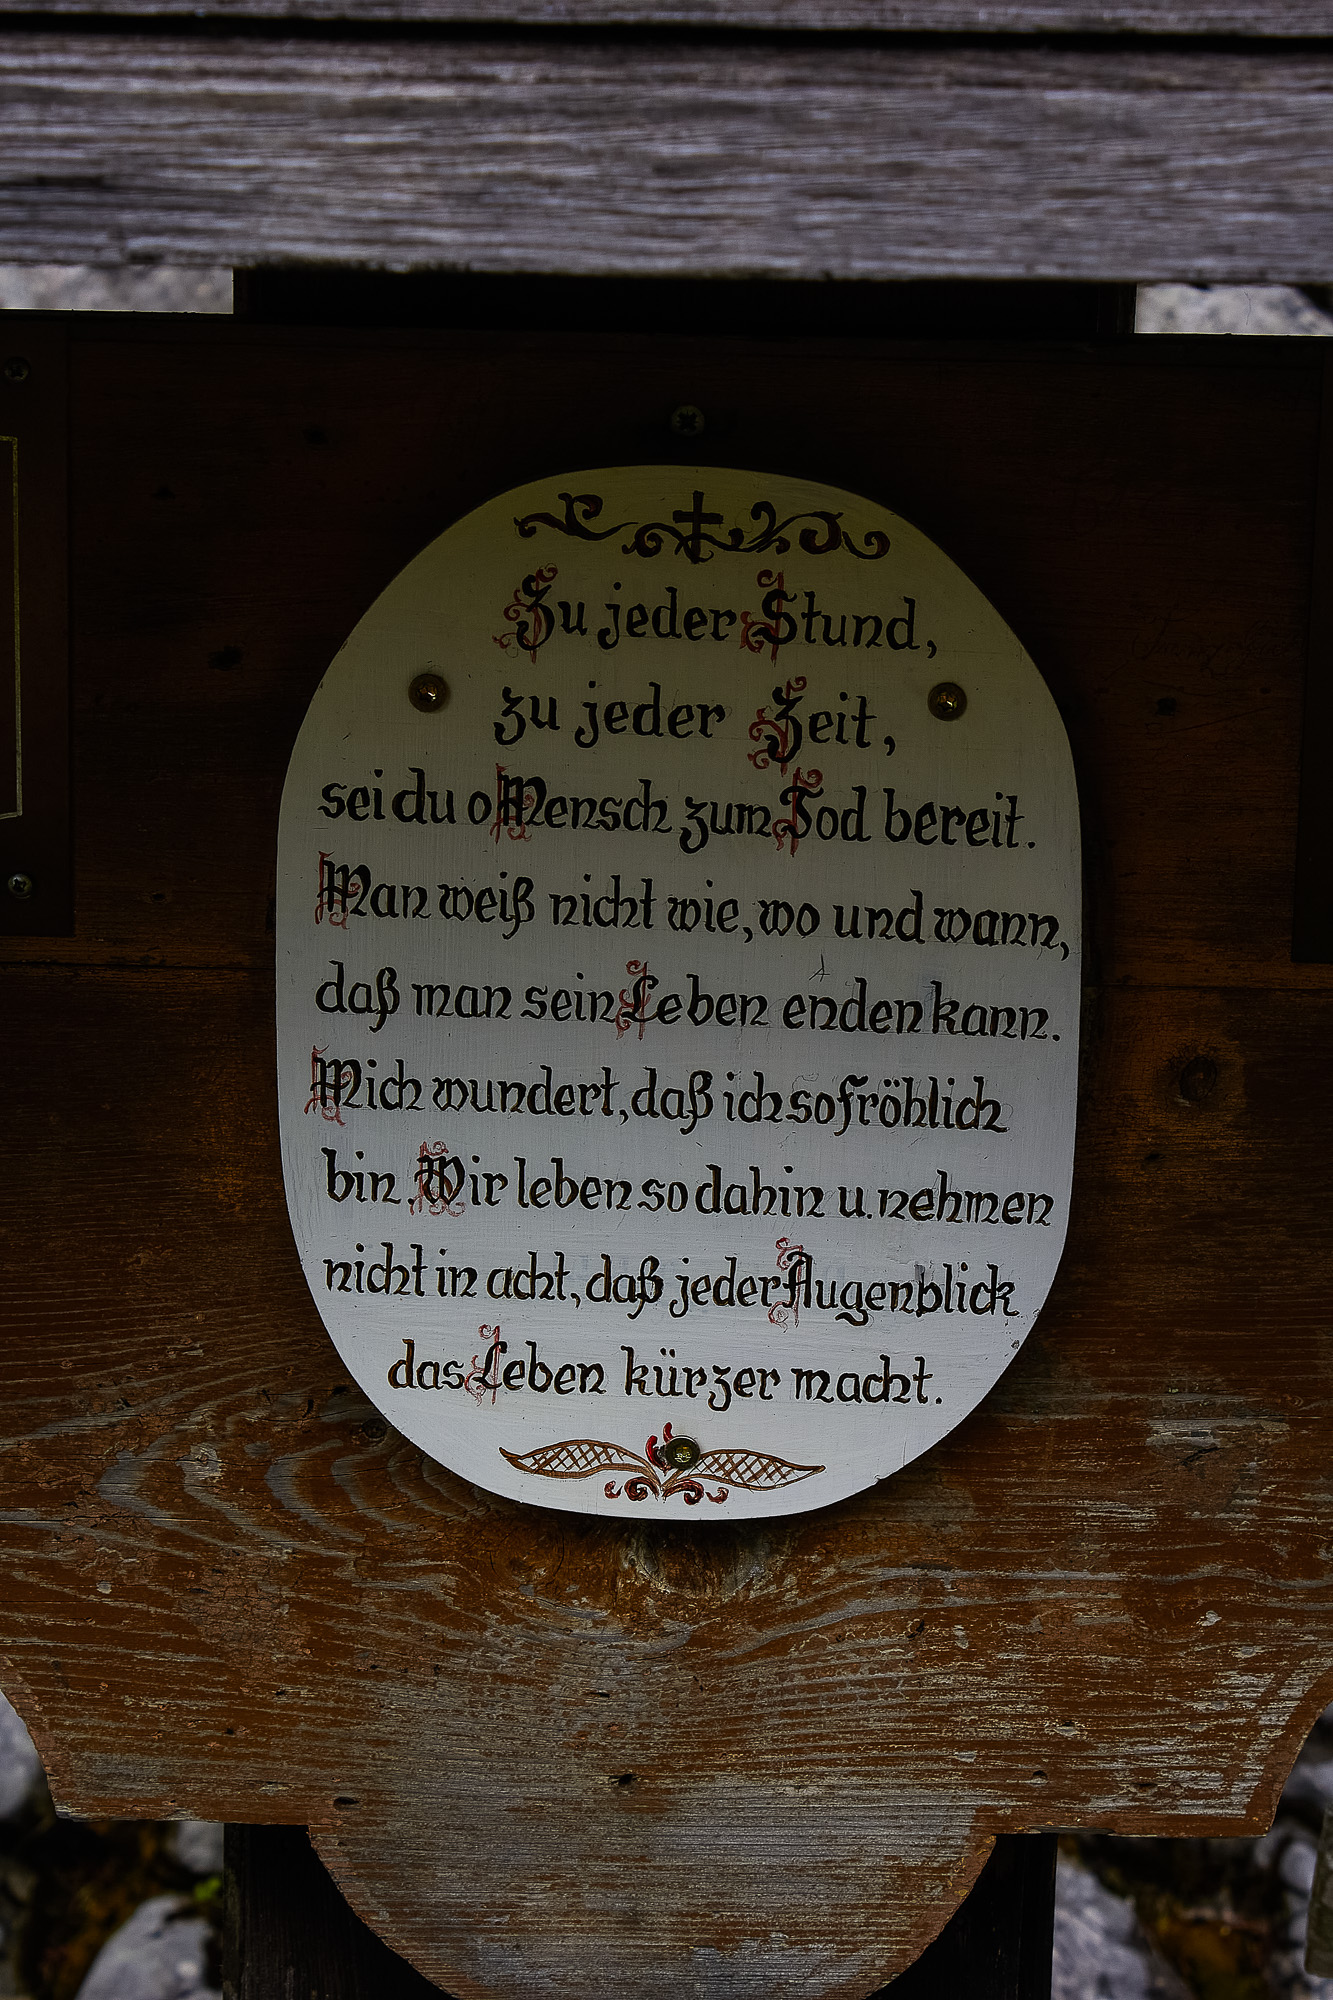 Zu jeder Stund,
zu jeder Zeit,
sei du o Mensch zum Tod bereit.
Man weiß nicht wie, wo und wann,
daß man sein Leben enden kann.
Mich wundert, daß ich so fröhlich
bin. Wir leben so dahin u. nehmen
nicht in acht, daß jeder Augenblick
das Leben kürzer macht.